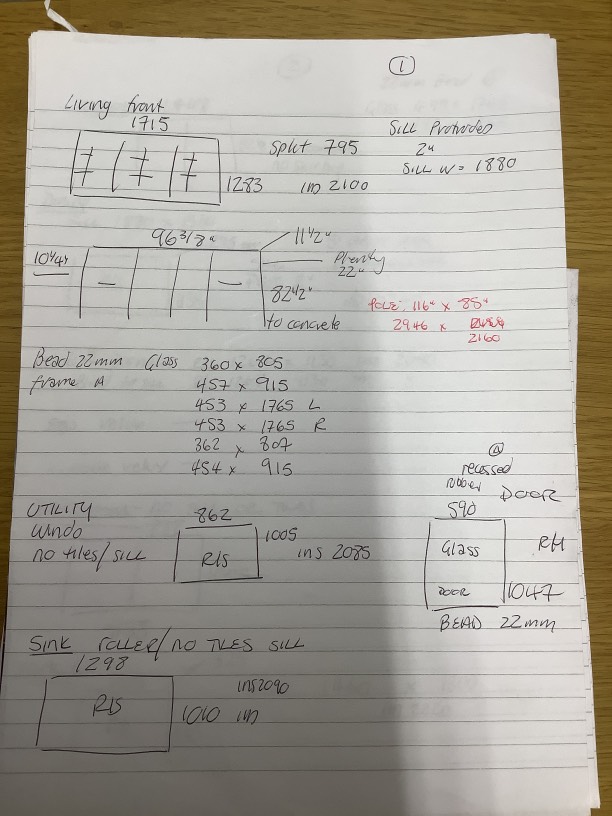 1
Living front
1715
Split 795
1283
ins 2100
Sill Protrudes
2"
Sill W= 1880
96 3/8"
11 1/2"
10 1/4"
Plenty
22"
82 1/2"
to concrete
Pole: 116" x 85"
2946 x
2160
Bead 22mm Glass 360 x 805
frame A
457 x 915
453 x 1765 L
453 x 1765 R
362 x 807
454 x 915
A
recessed
rubber
DOOR
590
Glass
RH
DOOR
1047
BEAD 22mm
UTILITY
Windo
no tiles/sill
862
1005
ins 2085
Sink ROLLER/NO TILES SILL
1298
ins 2090
1010